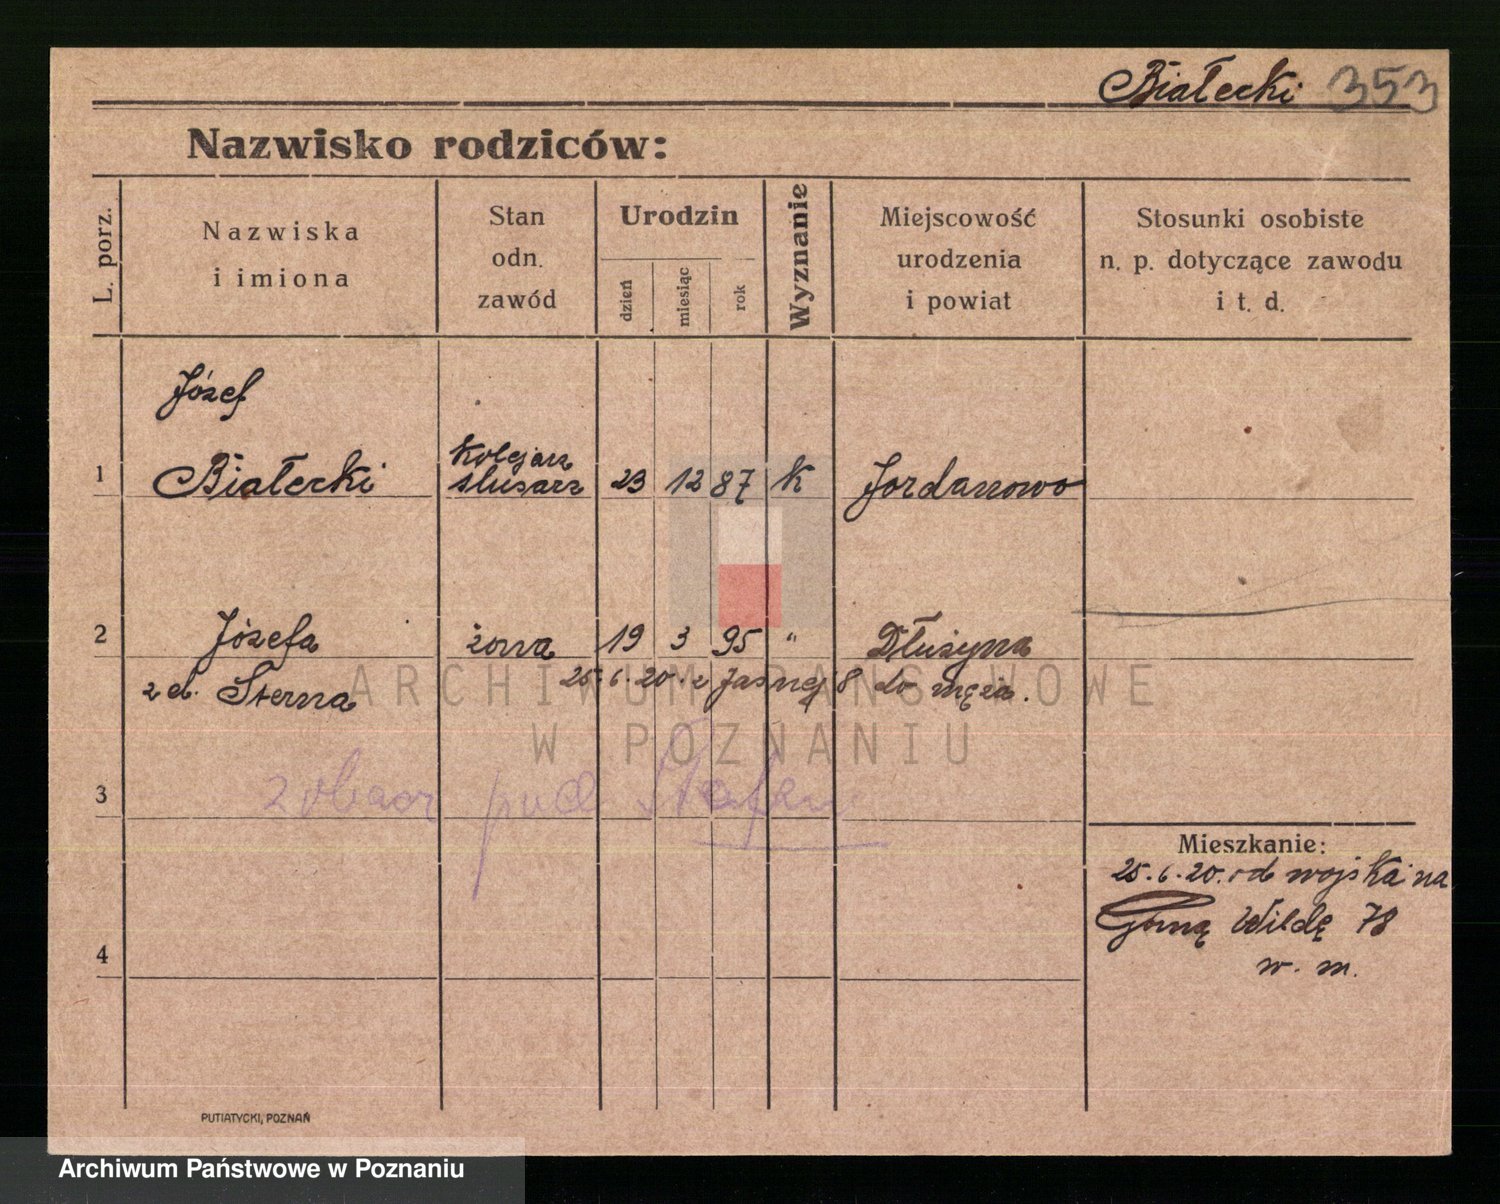 Białecki 353
Nazwisko rodziców:
L. porz.
Nazwiska
i imiona
Stan
odn.
zawód
Urodzin
dzień
miesiąc
rok
Wyznanie
Miejscowość
urodzenia
i powiat
Stosunki osobiste
n. p. dotyczące zawodu
i t. d.
Józef
1 Białecki kolejarz ślusarz 23 12 87 K Jordanowo
2 Józefa żona 19 3 95 " Dłużyna
z d. Sterna 25.6.20. z Jasnej 8 do męża.
ARCHIWUM PAŃSTWOWE
W POZNANIU
3 zobacz pod
4
Mieszkanie:
25.6.20. od wojska na
Górną Wildę 78
w. m.
PUTIATYCKI, POZNAŃ
Archiwum Państwowe w Poznaniu